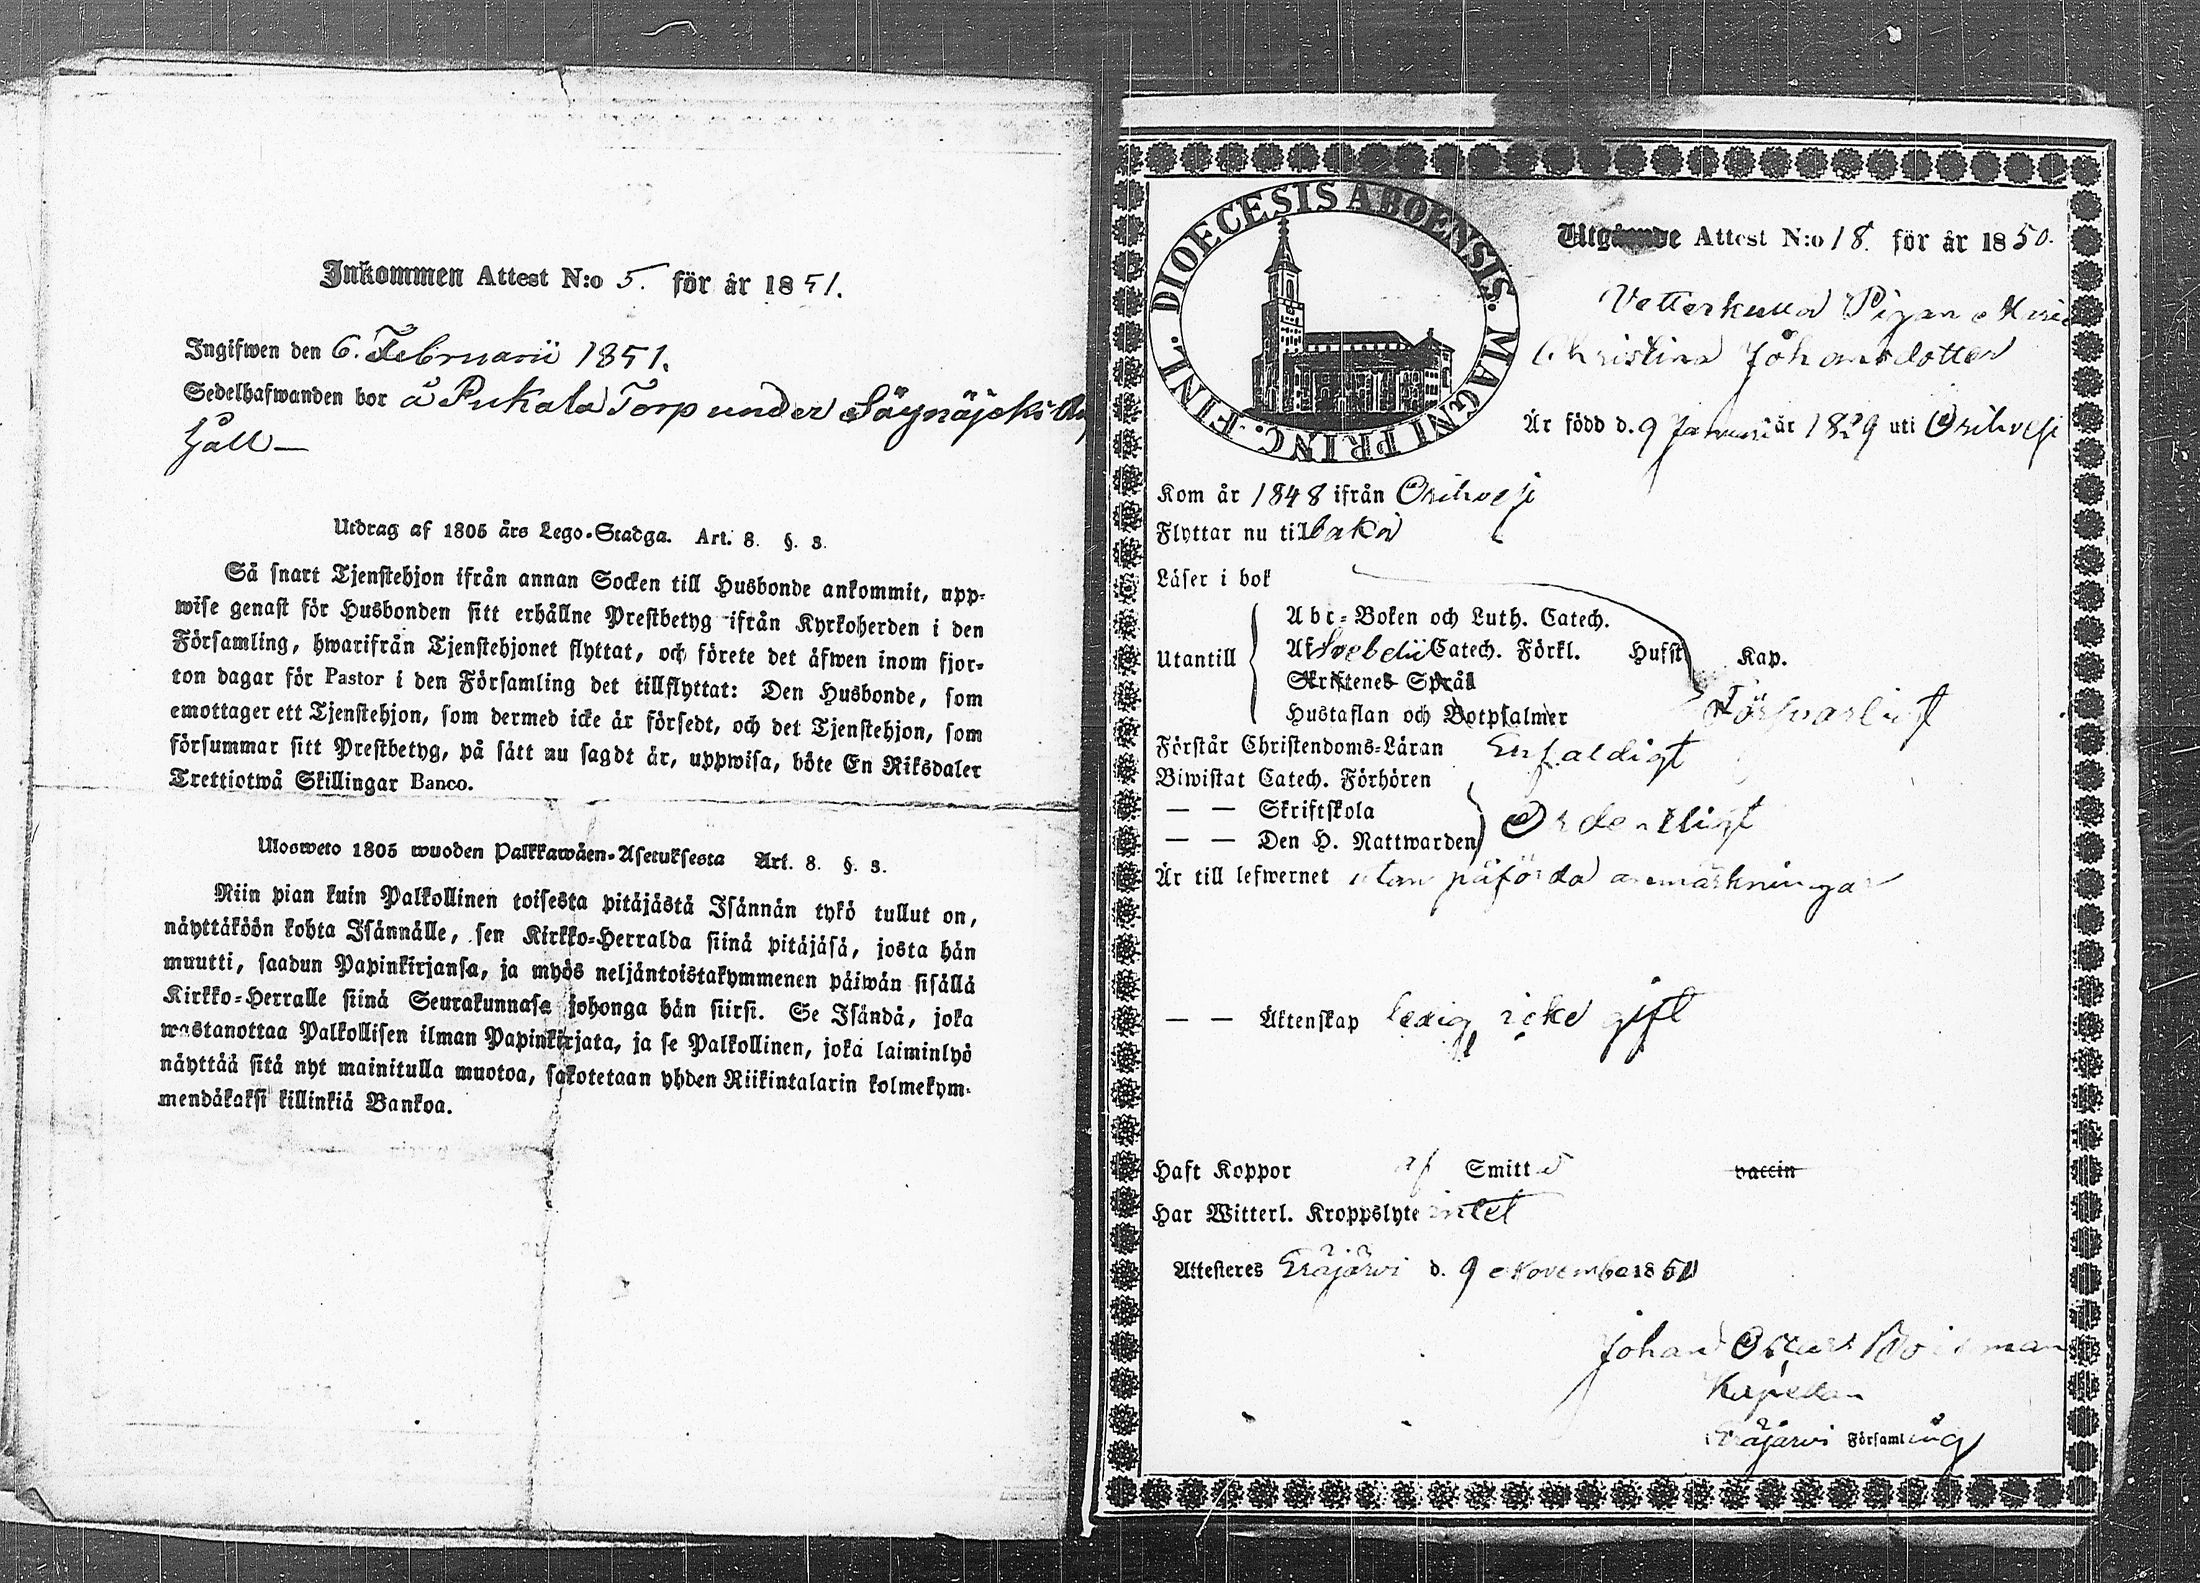 Inkommen Attest N:o 5. för år 1851.
Ingifwen den 6. Februarii 1851.
Sedelhafwanden bor å Pukala Torp under Säynäjoki
Gåll
Utdrag af 1805 års Lego-Stadga. Art. 8. §. 3.
Så snart Tjenstehjon ifrån annan Socken till Husbonde ankommit, upp-
wise genast för Husbonden sitt erhållne Prestbetyg ifrån Kyrkoherden i den
Församling, hwarifrån Tjenstehjonet flyttat, och förete det äfwen inom fjor-
ton dagar för Pastor i den Församling det tillflyttat: Den Husbonde, som
emottager ett Tjenstehjon, som dermed icke är försedt, och det Tjenstehjon, som
försummar sitt Prestbetyg, på sätt nu sagdt är, uppwisa, böte En Riksdaler
Trettiotwå Skillingar Banco.
Ulosweto 1805 wuoden Palkkawäen-Asetuksesta Art. 8. §. 3.
Niin pian kuin Palkollinen toisesta pitäjästä Isännän tykö tullut on,
näyttäköön kohta Isännälle, sen Kirkko-Herralda siinä pitäjäsä, josta hän
muutti, saadun Papinkirjansa, ja myös neljäntoistakymmenen päiwän sisällä
Kirkko-Herralle siinä Seurakunnasa johonga hän siirsi. Se Isändä, joka
wastanottaa Palkollisen ilman Papinkirjata, ja se Palkollinen, joka laiminlyö
näyttää sitä nyt mainitulla muotoa, sakotetaan yhden Riikintalarin kolmekym-
mendäkaksi killinkiä Bankoa.
DIOECESIS ABOENSIS. MAGNI PRINC. FINL.
Utgående Attest N:o 18. för år 1850.
Vetterkulla Pigan Maria
Christina Johansdotter
Är född d. 9 Januari år 1829 uti Orihvesi
Kom år 1848 ifrån Orihvesi
Flyttar nu tillbaka
Läser i bok
Abc-Boken och Luth. Catech.
Utantill Af Svebelii Catech. Förkl. Husst Kap.
Skriftenes Språk
Hustaflan och Botpsalmer Försvarligt
Förstår Christendoms-Läran Enfaldigt
Biwistat Catech. Förhören
— — Skriftskola
— — Den H. Nattwarden Ordentligt
Är till lefwernet utan påförda anmärkningar
— — Äktenskap ledig, icke gift
Haft Koppor af Smitta vaccin
Har Witterl. Kroppslyte intet
Attesteres Eräjärvi d. 9 November 1850
Johan Oscar
Kapellan
Eräjärvi Församling